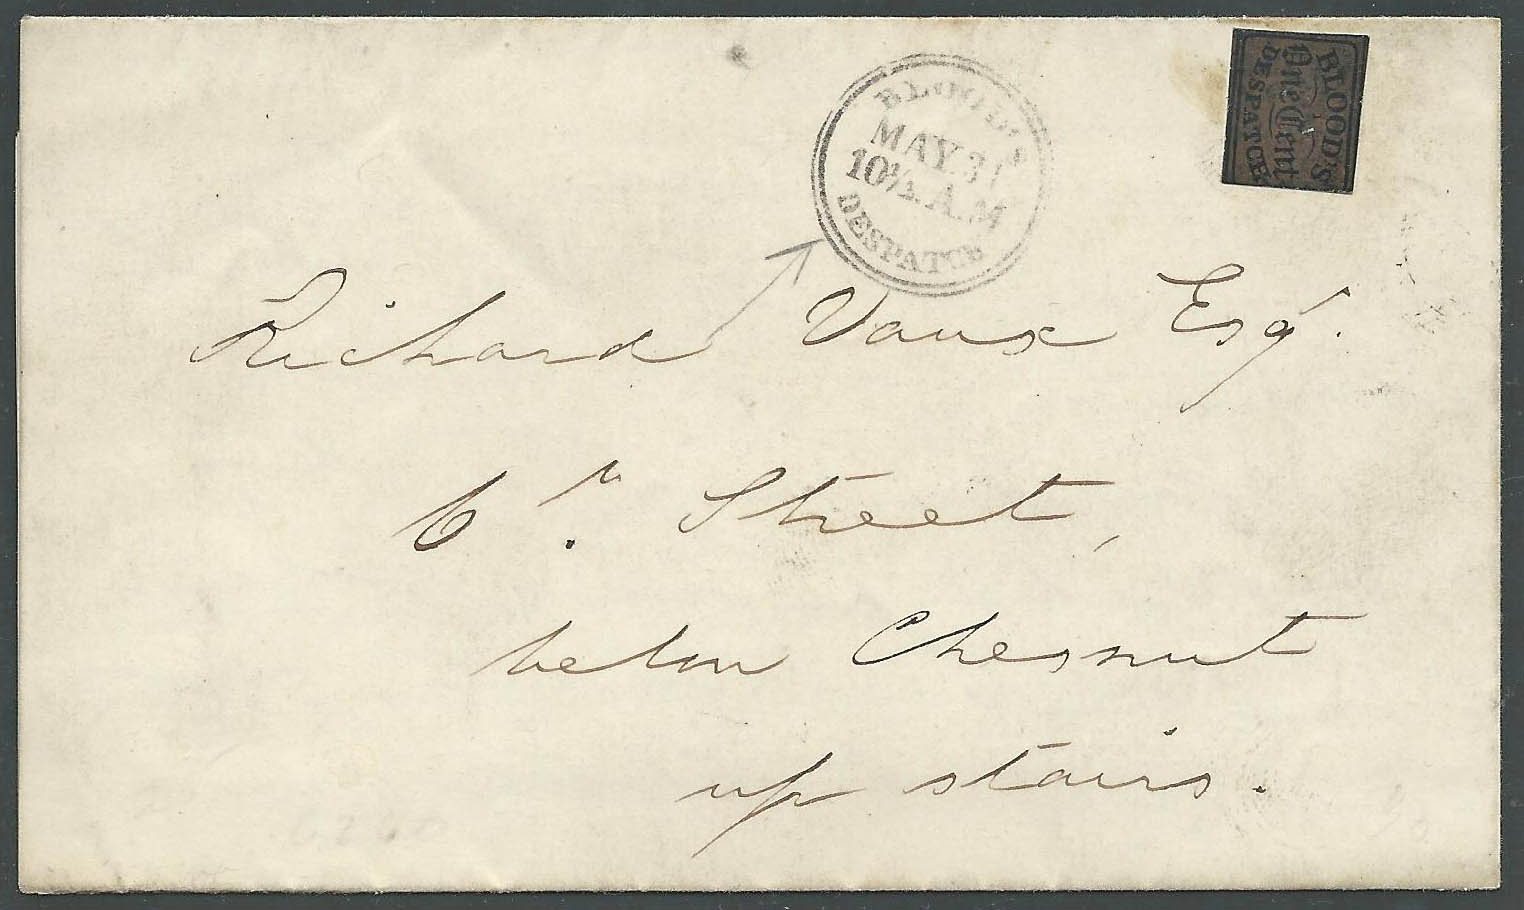 BLOOD'S
MAY 31
10½ A.M
DESPATCH
BLOOD'S
One Cent
DESPATCH
Richard Vaux Esqr.
6th Street,
below Chesnut
up stairs.